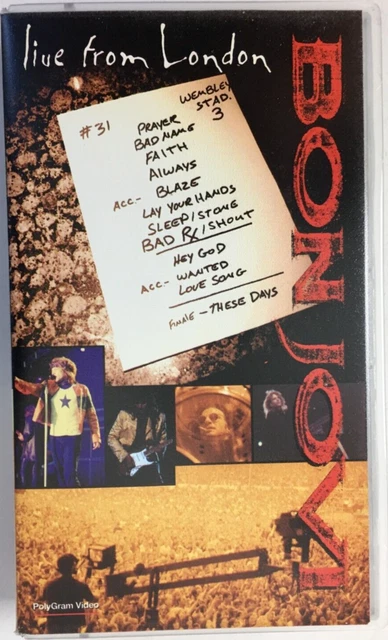 live from London
BON JOVI
#31
WEMBLEY
STAD.
3
PRAYER
BAD NAME
FAITH
ALWAYS
ACC- BLAZE
LAY YOUR HANDS
SLEEP/STONE
BAD RX/SHOUT
HEY GOD
ACC- WANTED
LOVE SONG
FINALE - THESE DAYS
PolyGram Video